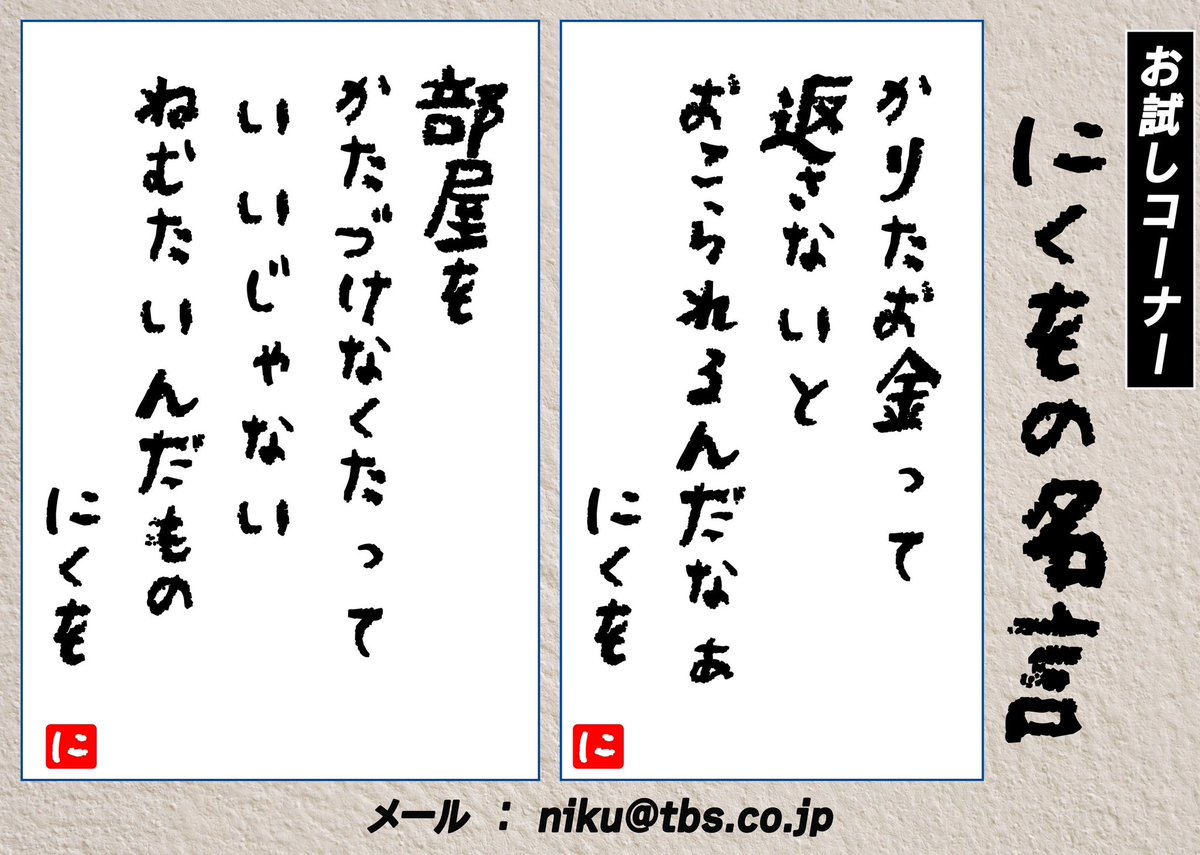 お試しコーナー
にくをの名言
かりたお金って
返さないと
おこられるんだなぁ
にくを
に
部屋を
かたづけなくたって
いいじゃない
ねむたいんだもの
にくを
に
メール : niku@tbs.co.jp